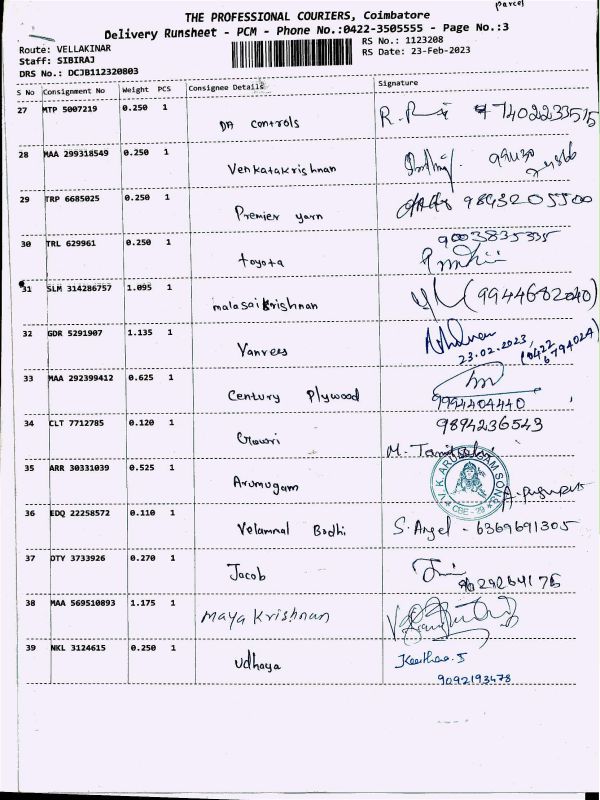 parcel
THE PROFESSIONAL COURIERS, Coimbatore
Delivery Runsheet - PCM - Phone No.:0422-3505555 - Page No.:3
Route: VELLAKINAR
Staff: SIBIRAJ
DRS No.: DCJB112320803
RS No.: 1123208
RS Date: 23-Feb-2023
S No Consignment No Weight PCS Consignee Details Signature
27 MTP 5007219 0.250 1 DA controls R. 7402233515
28 MAA 299318549 0.250 1 Venkatakrishnan
29 TRP 6685025 0.250 1 Premier yarn 9843205500
30 TRL 629961 0.250 1 toyota 9003835335
31 SLM 314286757 1.095 1 malasaikrishnan (9944682040)
32 GDR 5291907 1.135 1 Vanrees
23.02.2023
33 MAA 292399412 0.625 1 Century Plywood
9994404440
34 CLT 7712785 0.120 1 9894236543
M.
35 ARR 30331039 0.525 1 Arumugam V.K. ARUMUGAM SONS CBE - 29
36 EDQ 22258572 0.110 1 Velammal Bodhi S. Angel - 6369691305
37 DTY 3733926 0.270 1 Jacob
38 MAA 569510893 1.175 1 Maya Krishnan
39 NKL 3124615 0.250 1 Udhaya Keerthae. J
9092193478